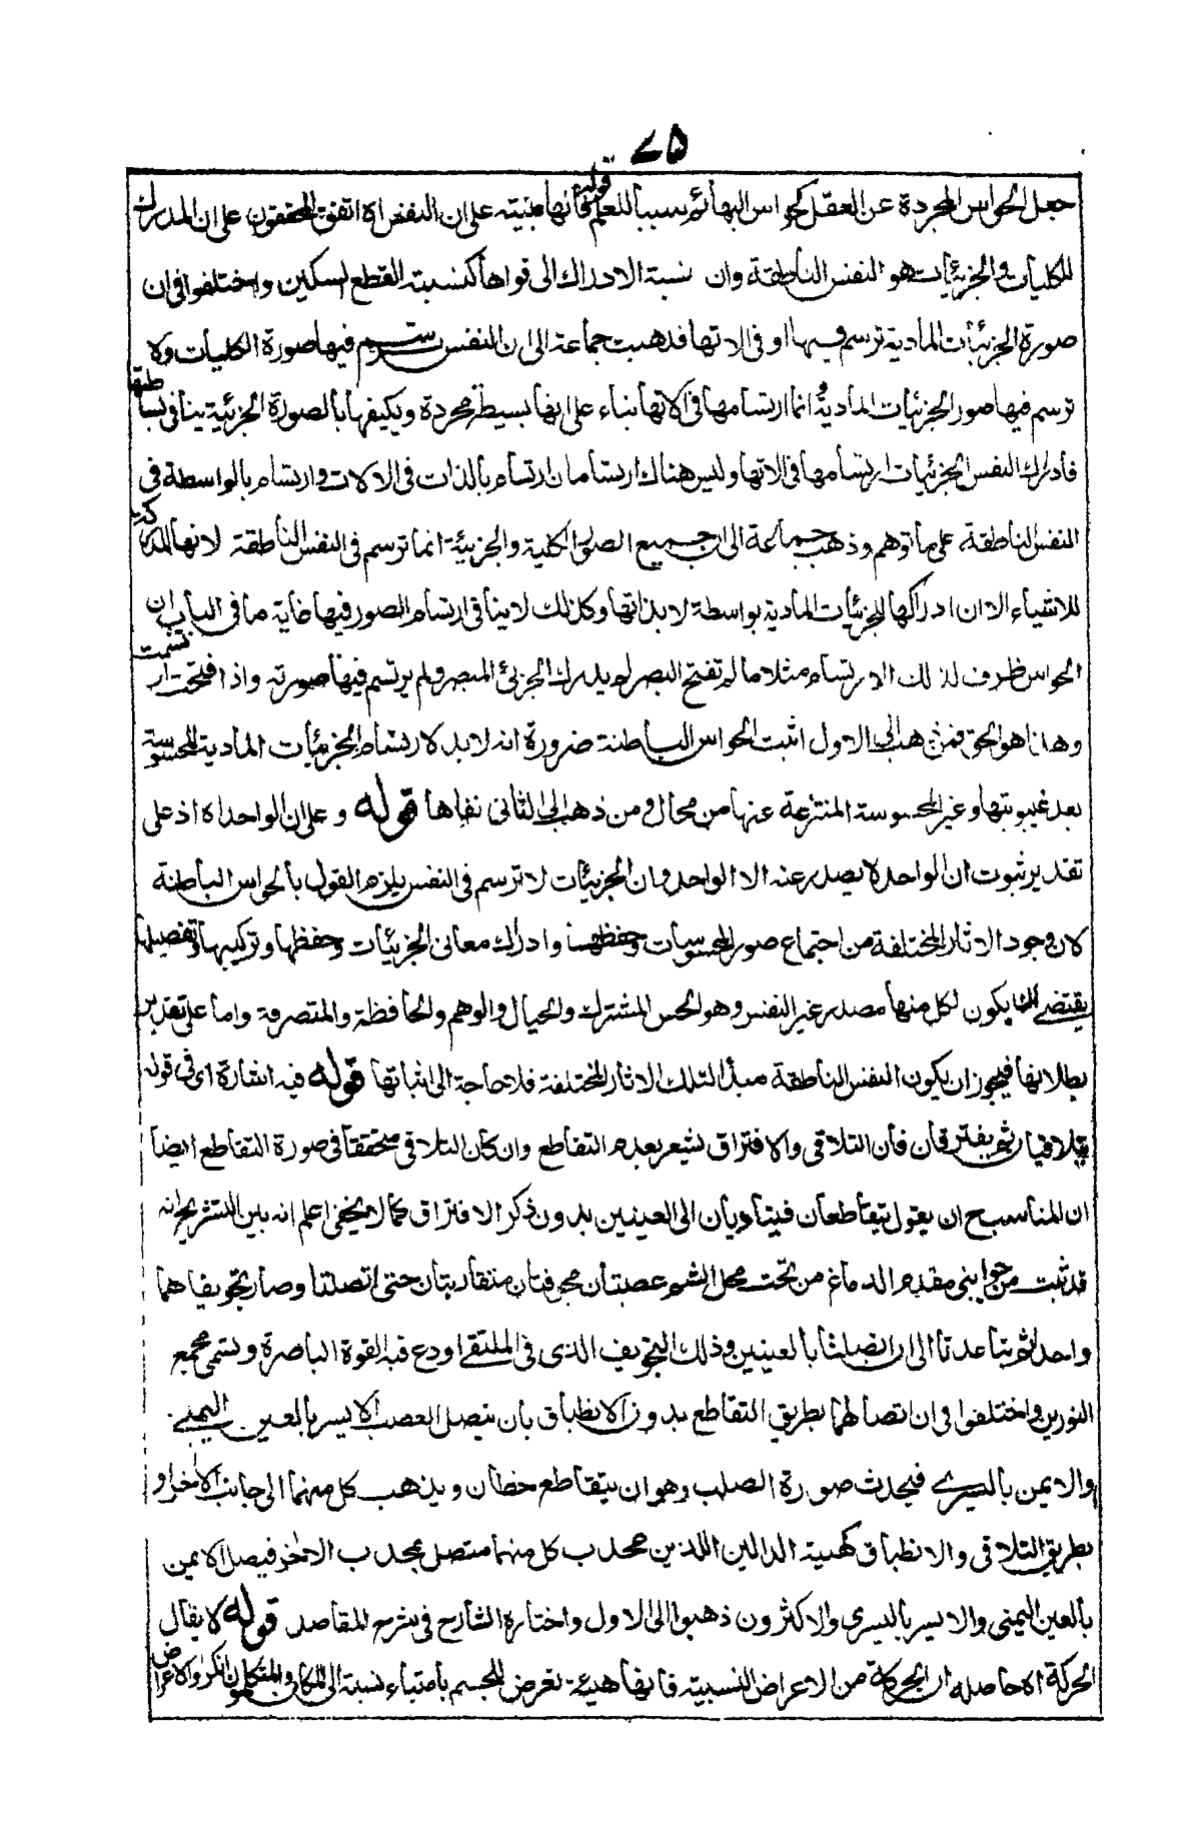 ٧٥
جعل الحواس المجردة عن العقل كحواس البهائم سببا للعلم قوله فانها مبنية على ان النفس اه اتفق المحققون على ان المدرك
للكليات والجزئيات هو النفس الناطقة وان نسبة الادراك الى قواها كنسبة القطع لسكين واختلفوا فى ان
صورة الجزئيات المادية ترسم فيها او فى الاتها فذهبت جماعة الى ان النفس ترتسم فيها صورة الكليات ولا
ترسم فيها صور الجزئيات المادية وانما ارتسامها فى الاتها بناء على انها بسيطة مجردة وتكيفها بالصورة الجزئية ينافى بساطتها
فادراك النفس الجزئيات ارتسامها فى الاتها وليس هناك ارتسامان ارتسام بالذات فى الالات وارتسام بالواسطة فى
النفس الناطقة على ما توهم وذهب جماعة الى ان جميع الصور الكلية والجزئية انما ترسم فى النفس الناطقة لانها المدركة
للاشياء الا ان ادراكها للجزئيات المادية بواسطة لا بذاتها وكل ذلك لا ينافى ارتسام الصور فيها غاية ما فى الباب ان
الحواس ظرف لذلك الارتسام مثلا ما لم تفتح البصر لم يدرك الجزئى المبصر ولم يرتسم فيها صورته واذا فتحت ارتسمت
وهذا هو الحق فمن ذهب الى الاول اثبت الحواس الباطنة ضرورة انه لا بد لارتسام الجزئيات المادية المحسوسة
بعد غيبوبتها وغير المحسوسة المنتزعة عنها من محال ومن ذهب الى الثانى نفاها قوله وعلى ان الواحد اه اذ على
تقدير ثبوت ان الواحد لا يصدر عنه الا الواحد وان الجزئيات لا ترسم فى النفس يلزم القول بالحواس الباطنة
لان وجود الاثار المختلفة من اجتماع صور المحسوسات وحفظها وادراك معانى الجزئيات وحفظها وتركيبها وتفصيلها
يقتضى ان يكون لكل منها مصدر غير النفس وهو الحس المشترك والخيال والوهم والحافظة والمتصرفة واما على تقدير
بطلانها فيجوز ان يكون النفس الناطقة مبدأ لتلك الاثار المختلفة فلا حاجة الى اثباتها قوله فيه اشارة اى فى قوله
يتلاقيان ثم يفترقان فان التلاقى والافتراق يشعر بعدم التقاطع وان كان التلاقى متحققا فى صورة التقاطع ايضا
ان المناسب ح ان يقول يتقاطعان فيتأديان الى العينين بدون ذكر الافتراق كما لا يخفى اعلم انه بين التشريح انه
قد ثبت من جوانبى مقدم الدماغ من تحت محل الشم عصبتان مجوفتان متقاربتان حتى اتصلتا وصار تجويفاهما
واحدا ثم تباعدتا الى ان اتصلتا بالعينين وذلك التجويف الذى فى الملتقى اودع فيه القوة الباصرة وتسمى مجمع
النورين واختلفوا فى ان اتصالهما بطريق التقاطع بدون الانطباق بان يتصل العصب الايسر بالعين اليمنى
والايمن باليسرى فيحدث صورة الصليب وهو ان يتقاطع خطان ويذهب كل منهما الى جانب الاخر او
بطريق التلاقى والانطباق كهيئة الدالين اللذين محدب كل منهما متصل بمحدب الاخر فيصل الايمن
بالعين اليمنى والايسر باليسرى والاكثرون ذهبوا الى الاول واختاره الشارح فى شرح المقاصد قوله لا يقال
الحركة اه حاصله ان الحركة من الاعراض النسبية فانها هيئة تعرض للجسم باعتبار نسبة الى المكان والمتكلمون انكروا الاعراض